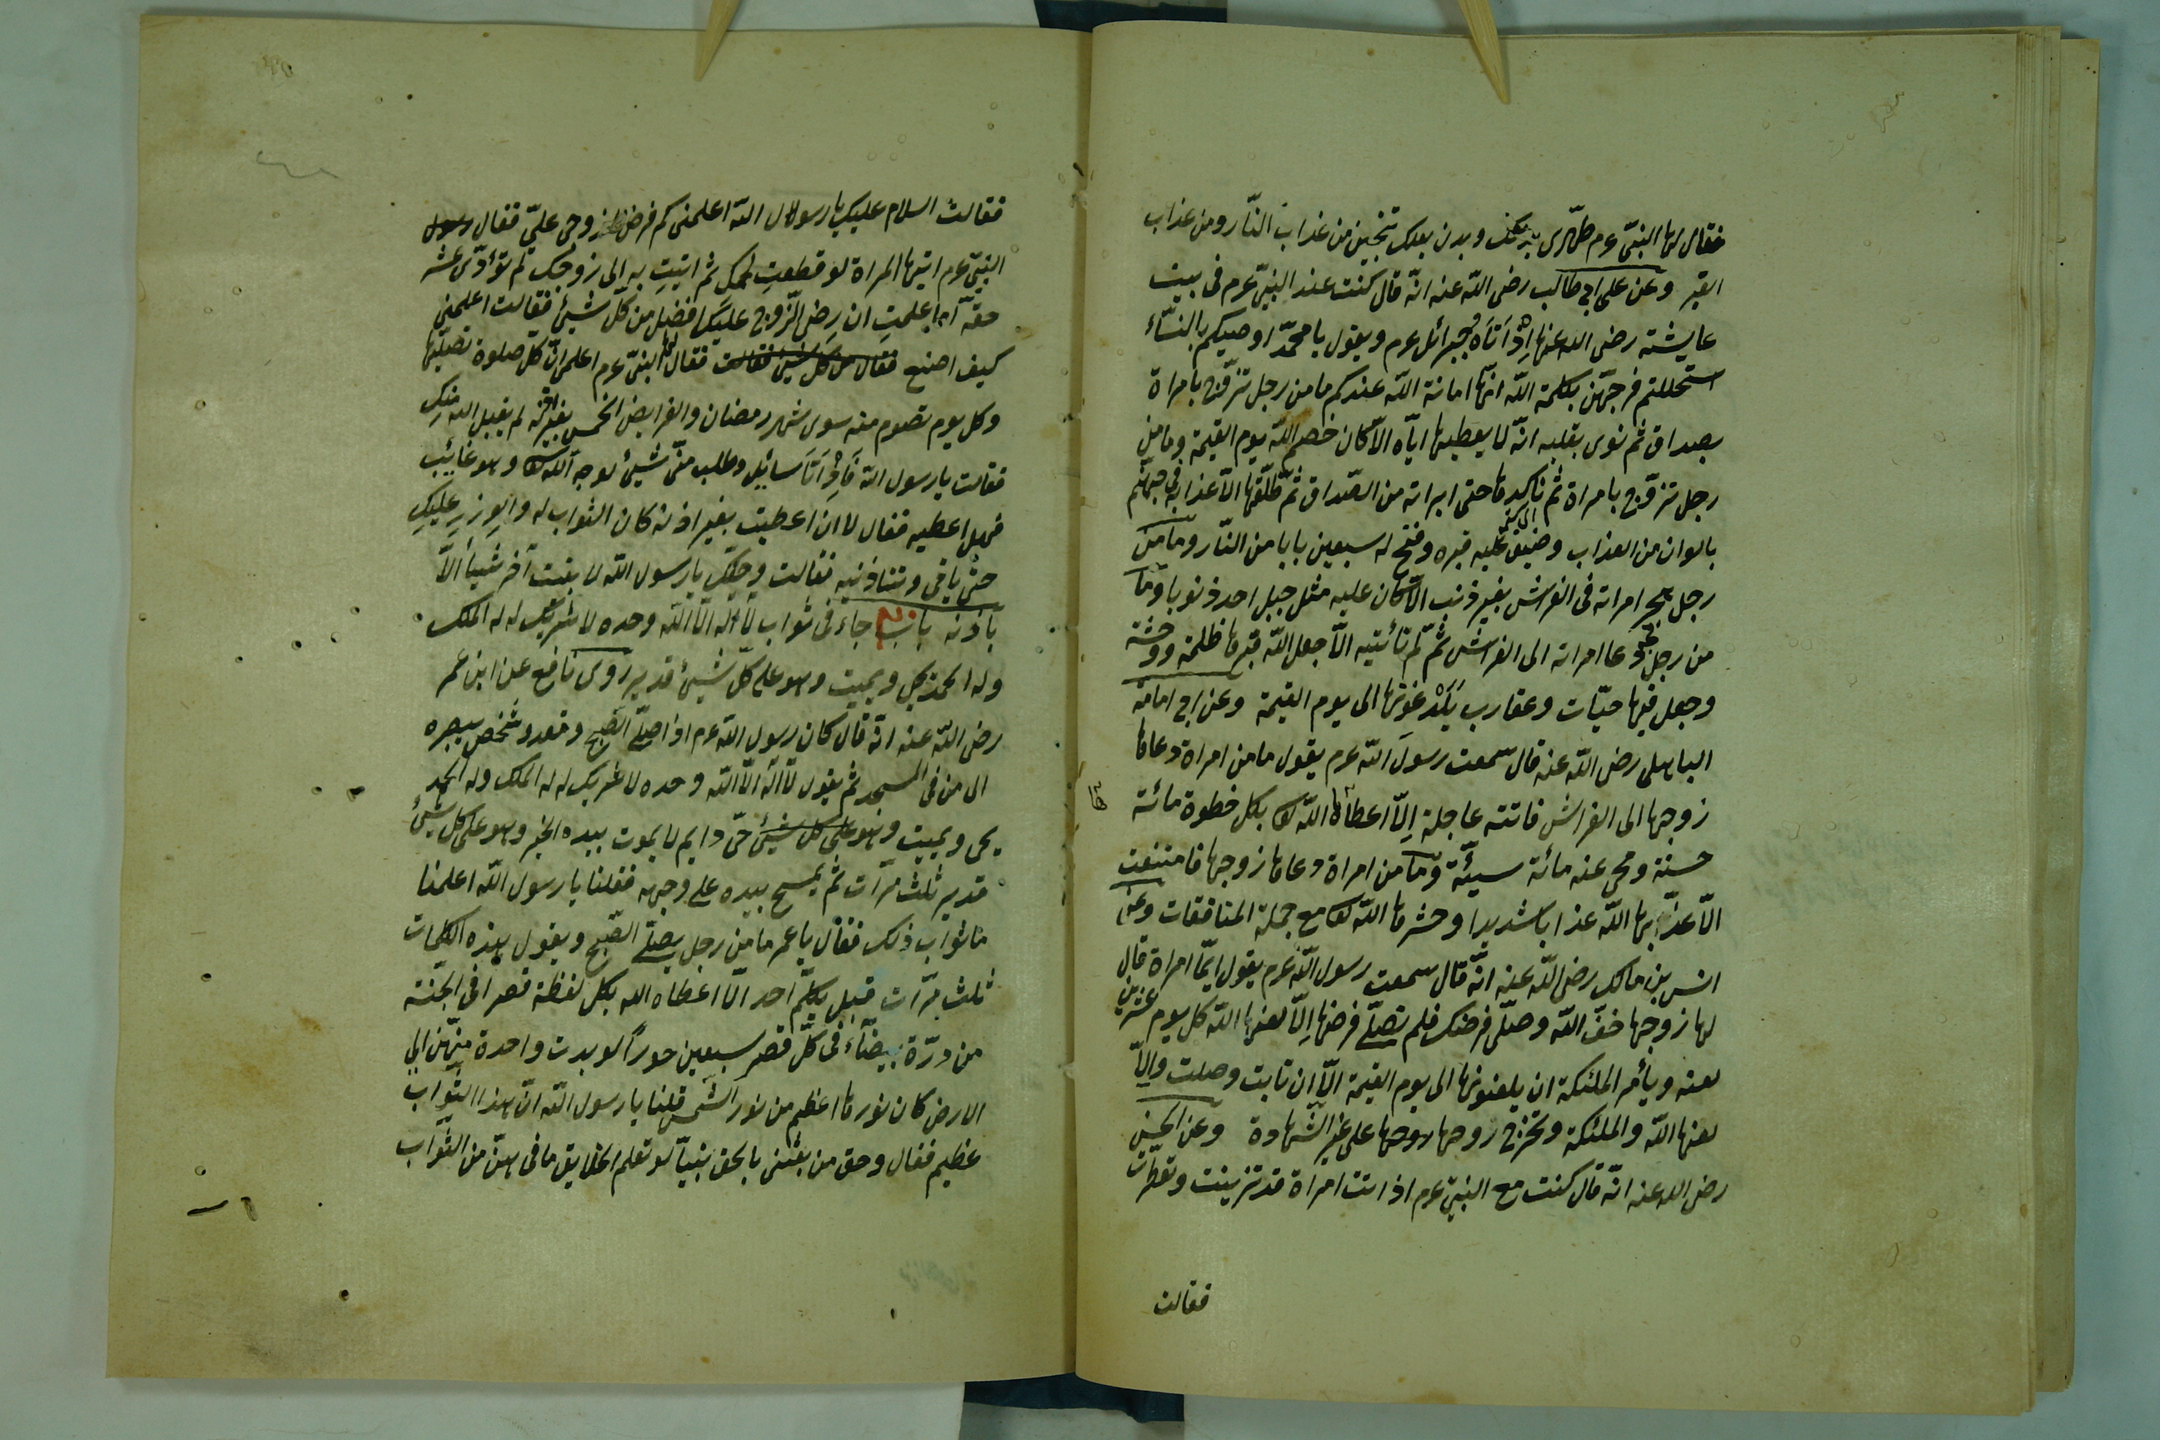 فقال لها النبىّ عم طهّرى بدنك وبدن بعلك تنجين من عذاب النّار ومن عذاب
القبر وعن على ابى طالب رضى الله عنه انّه قال كنت عند النبىّ عم فى بيت
عايشته رضى الله عنها اِذْ اَتاَهُ جبرائل عم ويقول يا محمّد اوصيكم بالنسّاء
استحللتم فرجهنّ بكلمة الله انّها امانة الله عندكم ما من رجل تزوّج بامراة
بصداق ثم نوى بقلبه انّه لا يعطيها ايّاه الاّ كان خصم الله يوم القيمة وما من
رجل تزوّج بامراة ثم حتى ابراته من الصّداق ثمّ طلّقها الاّ عذابه فى جهنّم
بالوان من العذاب وضيق عليه قبره وفتح له سبعين بابا من النّار وما من
رجل هجر امراته فى الفراش بغير ذنب الاّ كان عليه مثل جبل احد ذنوبا وما
من رجل دعا امراته الى الفراش ثمّ لم تأتيه الاّ جعل الله قبرها ظلمة ووحشة
وجعل فيها حيّات وعقارب يَلَدْغونها الى يوم القيمة وعن ابى امامة
الباهلى رضى الله عنه قال سمعت رسولَ الله عم يقول ما من امراة دعاها
زوجها الى الفراش فاتته عاجلة اِلاّ اعطاها الله بكل خطوة مائة
حسنة ومحى عنه مائة سيئّة وما من امراة دعاها زوجها فامتنعت
الاّ عذّبها الله عذابا شديدا وحشرها الله مع جملة المنافقات وعن
انس بن مالك رضى الله عنه انّه قال سمعت رسول الله عم يقول ايّما امراة قال
لها زوجها خفّ الله وصلّى فرضك فلم تصلّى فرضها اِلاّ لعنها الله كل يوم عشرين
لعنه ويأمر الملئكة ان يلعنونها الى يوم القيمة الاّ ان تابت وصلت واِلاّ
لعنها الله والملئكة وتخرج روحها على غير الشّهادة وعن الحسن
رضى الله عنه انّه قال كنت مع النبىّ عم اذ اتت امراة قد تزينت وتعطّرت
فقالت
فقالت السلام عليك يا رسول الله اعلمنى كم فرض زوجى علىّ فقال رسول
النبىّ عم ايتها المراة لو قطعتِ لحمك ثم اتيتِ به الى زوجك لم تؤدّى عشر
حقّه اما علمتِ ان رضى الزّوج عليك افضل من كلّ شيئ فقالت اعلمنى
كيف اصنع فقال من كل شيئ فقالت فقال لها النبىّ عم اعلمى انّ كلّ صلوة تصلّيها
وكل يوم تصوم منه سوى شهر رمضان والفرايض الخمس بغير اذنه لم يقبل الله منك
فقالت يا رسول الله فَاِذْ اَتاَ سائيل وطلب منّى شيئ لوجه الله وهو غائيب
فهل اعطيه فقال لا ان اعطيت بغير اذنه كان الثواب له والوِزر عليكِ
حتى ياتى وتتاذنيه فقالت وحقّك يا رسول الله لا بقيت آخر شيأ الاّ
باذنه باب جاء فى ثواب لا اله الاّ الله وحده لا شريك له له الملك
وله الحمد يحيى ويميت وهو على كلّ شيئ قدير روى نافع عن ابن عمر
رضى الله عنه انّه قال كان رسول الله عم اذا صلّى الصّبح وقعد وشخص ببصره
الى من فى المسجد ثم يقول لا اله الاّ الله وحده لا شريك له له الملك وله الحمد
يحى ويميت وهو على كل شيئ حىّ دايم لا يموت بيده الخير وهو على كل شيئ
قدير ثلث مرّات ثم يمسح بيده على وجهه فقلنا يا رسول الله اعلمنا
ما ثواب ذلك فقال يا عمر ما من رجل يصلّى الصّبح ويقول بهذه الكلمات
ثلث مرّات قبل يكلّم احد الاّ اعطاه الله بكل لفظة قصرا فى الجنّة
من درّة بيضآء فى كلّ قصر سبعين حوراً لو بدت واحدة منهنّ الى
الارض كان نورها اعظم من نور الشمس قلنا يا رسول الله انّ هذا الثواب
عظيم فقال وحق من بعثنى بالحق نبيّاً لو تعلم الخلايق ما فى هنّ من الثواب